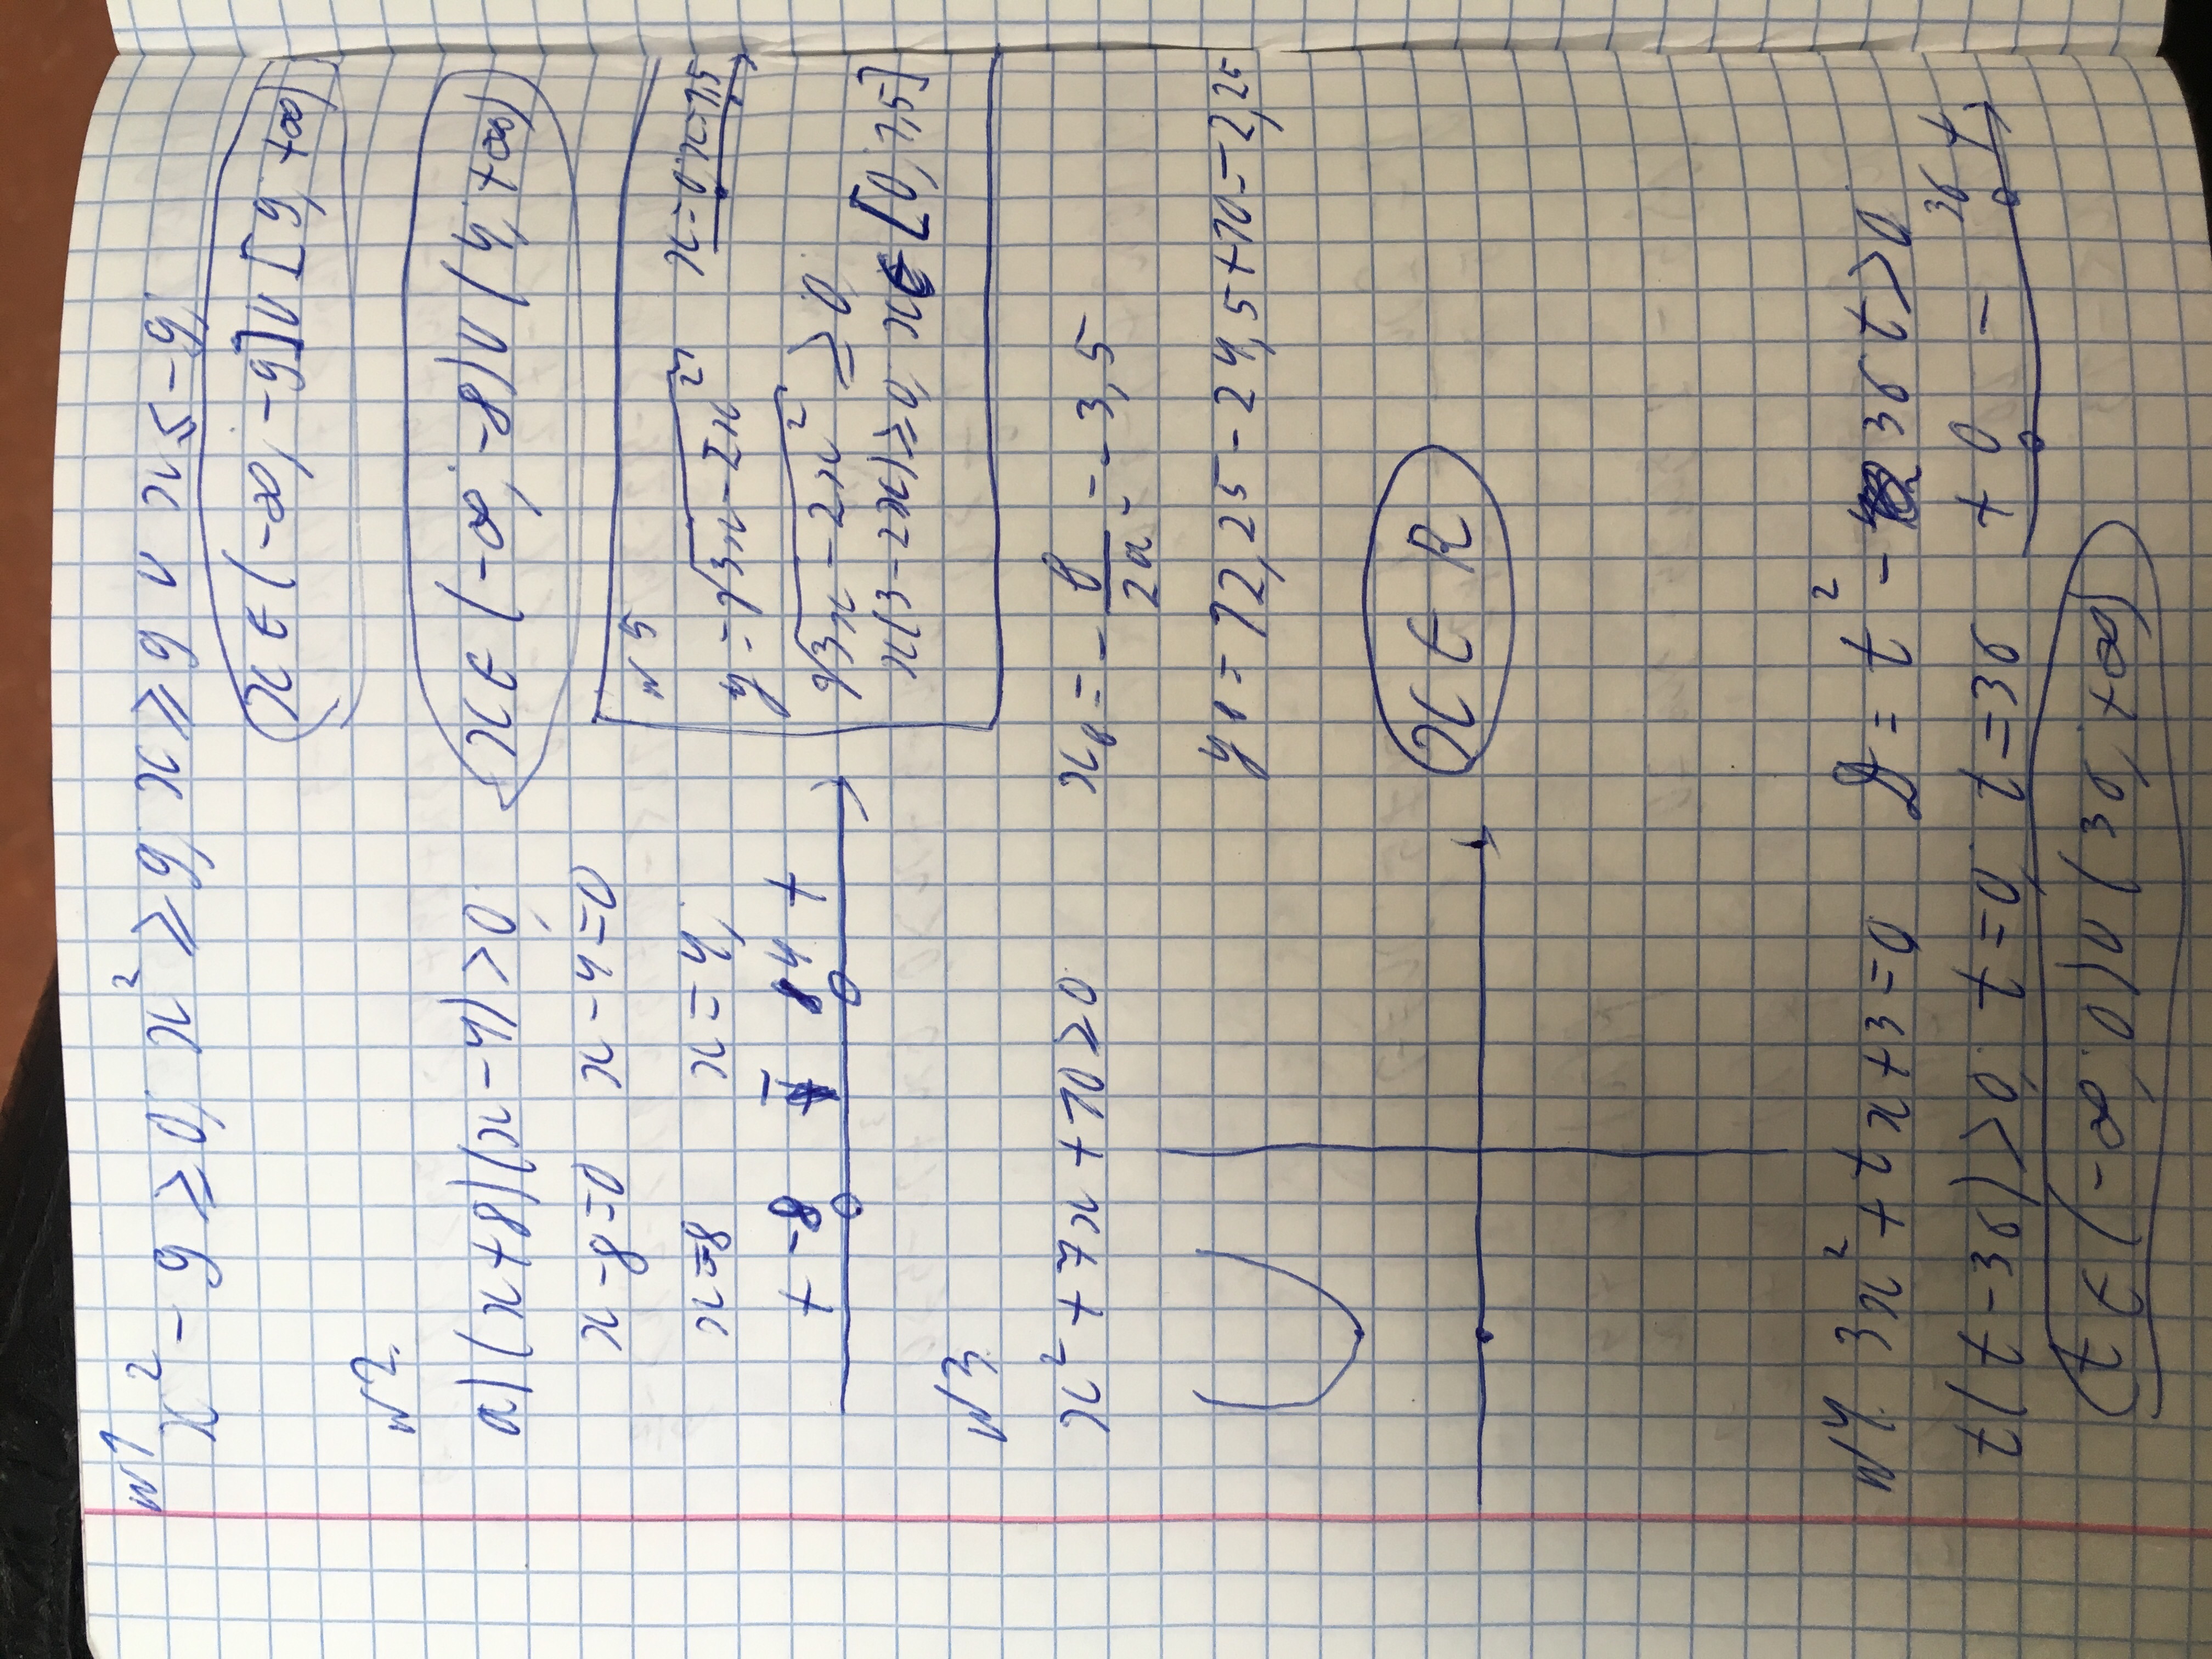 №1
x² - 9 ≥ 0; x² ≥ 9; x ≥ 9 и x ≤ -9;
x ∈ (-∞; -9] ∪ [9; +∞)
№2.
а) (x+8)(x-4) > 0;
x ∈ (-∞; -8) ∪ (4; +∞)
x -8=0 x-4=0
x=-8 x=4;
+ -8 - 4 +
№5
y = √3x-2x²; x=0; x=1,5
√3x-2x² ≥ 0;
x(3-2x) ≥ 0; x ∈ [0; 1,5]
№3.
x² + 7x + 10 ≥ 0
xв = - в/2а = -3,5
yв = 12,25 - 24,5 + 10 = -2,25
x ∈ R
№4. 3x² + tx + 3 = 0 D = t² - 36t > 0
t(t-36) > 0; t=0; t=36 + 0 - 36 +
t ∈ (-∞; 0) ∪ (36; +∞)